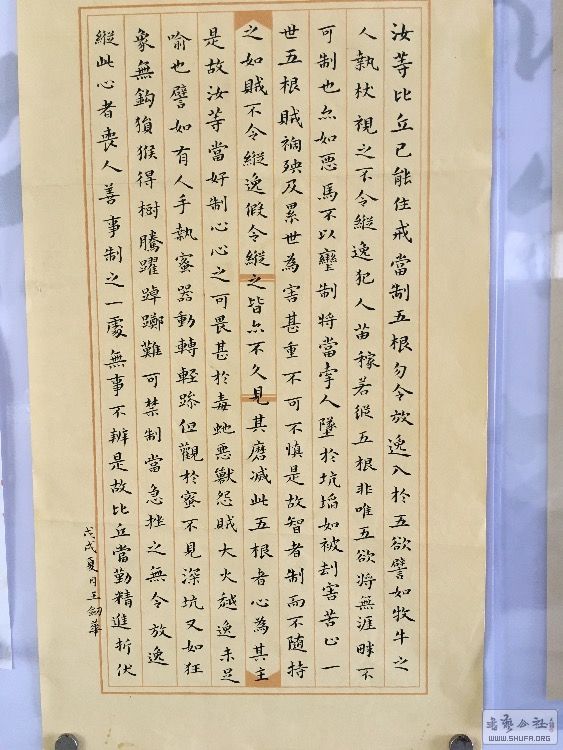 汝等比丘已能住戒當制五根勿令放逸入於五欲譬如牧牛之
人執杖視之不令縱逸犯人苗稼若縱五根非唯五欲將無涯畔不
可制也亦如惡馬不以轡制將當牽人墜於坑埳如被刦害苦止一
世五根賊禍殃及累世為害甚重不可不慎是故智者制而不隨持
之如賊不令縱逸假令縱之皆亦不久見其磨滅此五根者心為其主
是故汝等當好制心心之可畏甚於毒虵惡獸怨賊大火越逸未足
喻也譬如有人手執蜜器動轉輕躁但觀於蜜不見深坑又如狂
象無鈎猿猴得樹騰躍踔躑難可禁制當急挫之無令放逸
縱此心者喪人善事制之一處無事不辨是故比丘當勤精進折伏
戊戌夏月王劒華
書藝公社
WWW.SHUFA.ORG